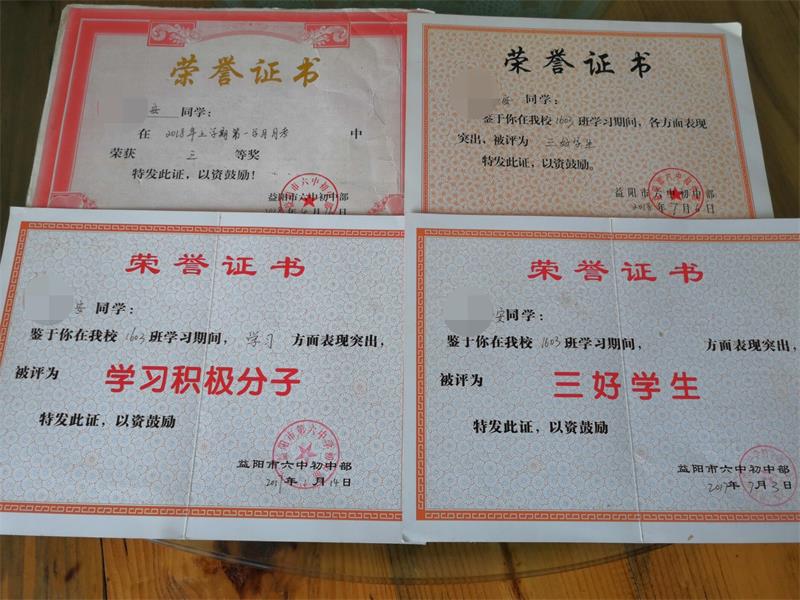 荣誉证书
安 同学：
在 2018年上学期第一次月考 中
荣获 三 等奖
特发此证，以资鼓励！
益阳市六中初中部
荣誉证书
安 同学：
鉴于你在我校 1603 班学习期间，各方面表现
突出，被评为 三好学生
特发此证，以资鼓励。
益阳市六中初中部
2018年7月6日
荣誉证书
安 同学：
鉴于你在我校 1603 班学习期间， 学习 方面表现突出，
被评为 学习积极分子
特发此证，以资鼓励
益阳市六中初中部
年 月14日
荣誉证书
安同学：
鉴于你在我校 1603 班学习期间， 方面表现突出，
被评为 三好学生
特发此证，以资鼓励
益阳市六中初中部
2017年7月3日